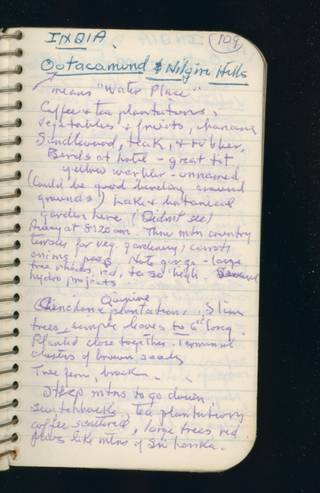 INDIA. 109
Ootacamund & Nilgiri Hills
means "Water Place"
Coffee & tea plantations,
vegetables & fruits, bananas
Sandlewood, teak, & rubber,
Birds at hotel - great tit
yellow warbler - unnamed,
(Could be good birding around
grounds) Lake & botanical
garden here (Didn't see)
Away at 8:20 am. Thru mtn country
terraces for veg. gardening, carrots
onions, peas. Note gorge - large
tree rhodos, red, to 50' high.
hydro projects
Quinine
Chinchona plantations, Slim
trees, simple leaves to 6" long.
Planted close together. Terminal
clusters of brown seeds
Tree fern, bracken.
Steep mtns to go down,
switchbacks, tea plantations,
coffee scattered, large trees, red
like mtns of Sri Lanka.